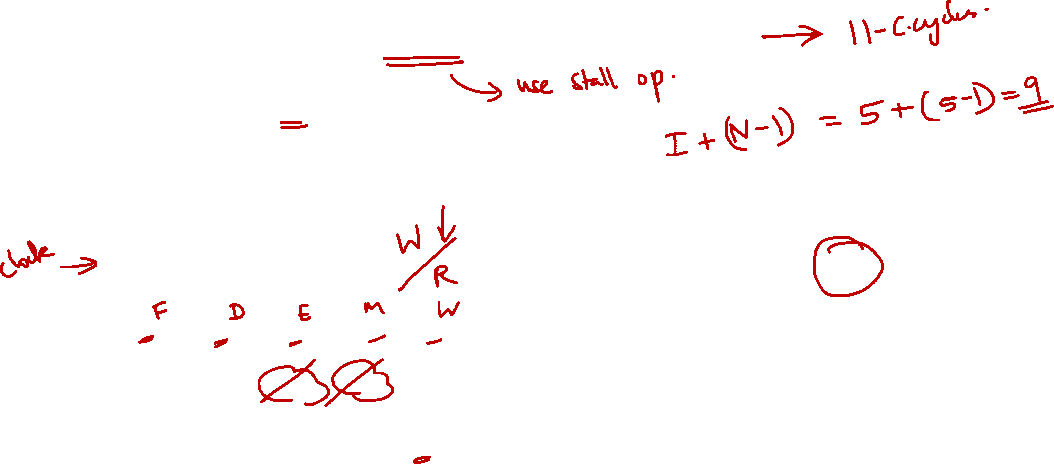 → 11-C.cycles.
→ use stall op.
I + (N-1) = 5+(5-1)=9
=
W
R
Clock →
F D E M W